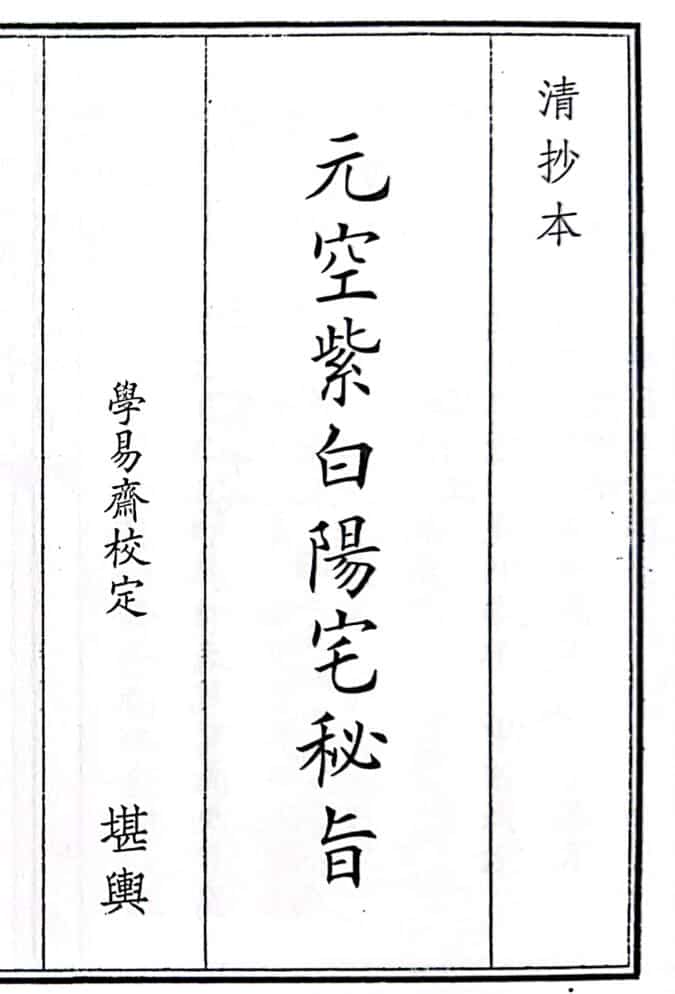 清抄本
元空紫白陽宅秘旨
學易齋校定
堪輿